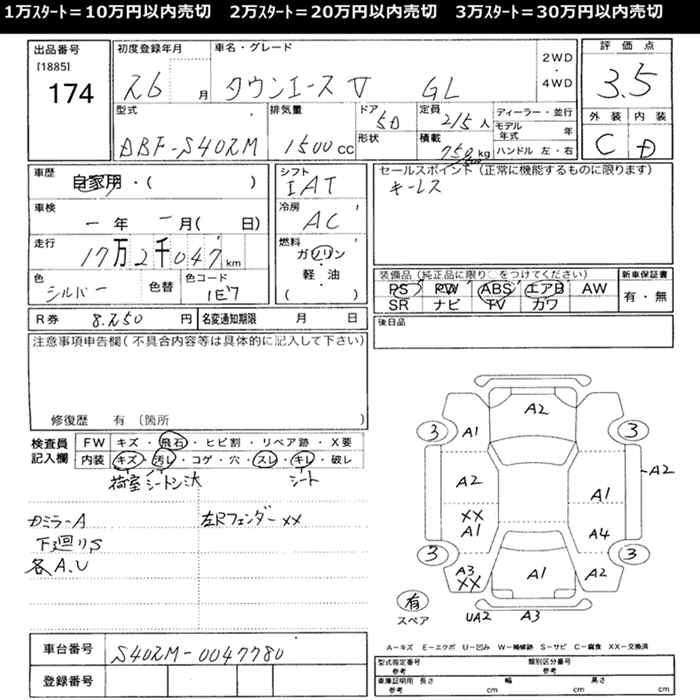 1万ｽﾀｰﾄ＝10万円以内売切　2万ｽﾀｰﾄ＝20万円以内売切　3万ｽﾀｰﾄ＝30万円以内売切
出品番号
[1885]
174
初度登録年月
26 月
車名・グレード
タウンエースV GL
2WD
・
4WD
評価点
3.5
外装 内装
C D
型式
DBF-S402M
排気量
1500 CC
ドア
5D
形状
定員
2/5 人
積載
750 kg
ディーラー・並行
モデル年式 年
ハンドル 左・右
車歴
自家用・( )
車検
一年 一月( 日)
走行
17万2千047 km
色
シルバー
色替
色コード
1E7
シフト
IAT
冷房
AC
燃料
ガソリン
・
軽・油
( )
セールスポイント（正常に機能するものに限ります）
キーレス
装備品（純正品に限り○をつけてください）
PS PW ABS エアB AW
SR ナビ TV カワ
新車保証書
有・無
R券 8,250 円
名変通知期限 月 日
後日品
注意事項申告欄（不具合内容等は具体的に記入して下さい）
修復歴 有（箇所
検査員
記入欄
FW キズ・飛石・ヒビ割・リペア跡・X要
内装 キズ・汚レ・コゲ・穴・スレ・キレ・破レ
荷室 シート シート
カミラーA
下廻りS
各A.U
左Rフェンダー XX
A2
3 A1 3
A2 A2
XX A1
A1 A4
3 3
A3 A1 A2
XX
有
スペア
UA2 A3
車台番号 S402M-0047780
登録番号
A－キズ E－エクボ U－凹み W－補修跡 S－サビ C－腐食 XX－交換済
型式指定番号
参考
類別区分番号
参考
車庫証明用
参考
長さ cm
幅 cm
高さ cm